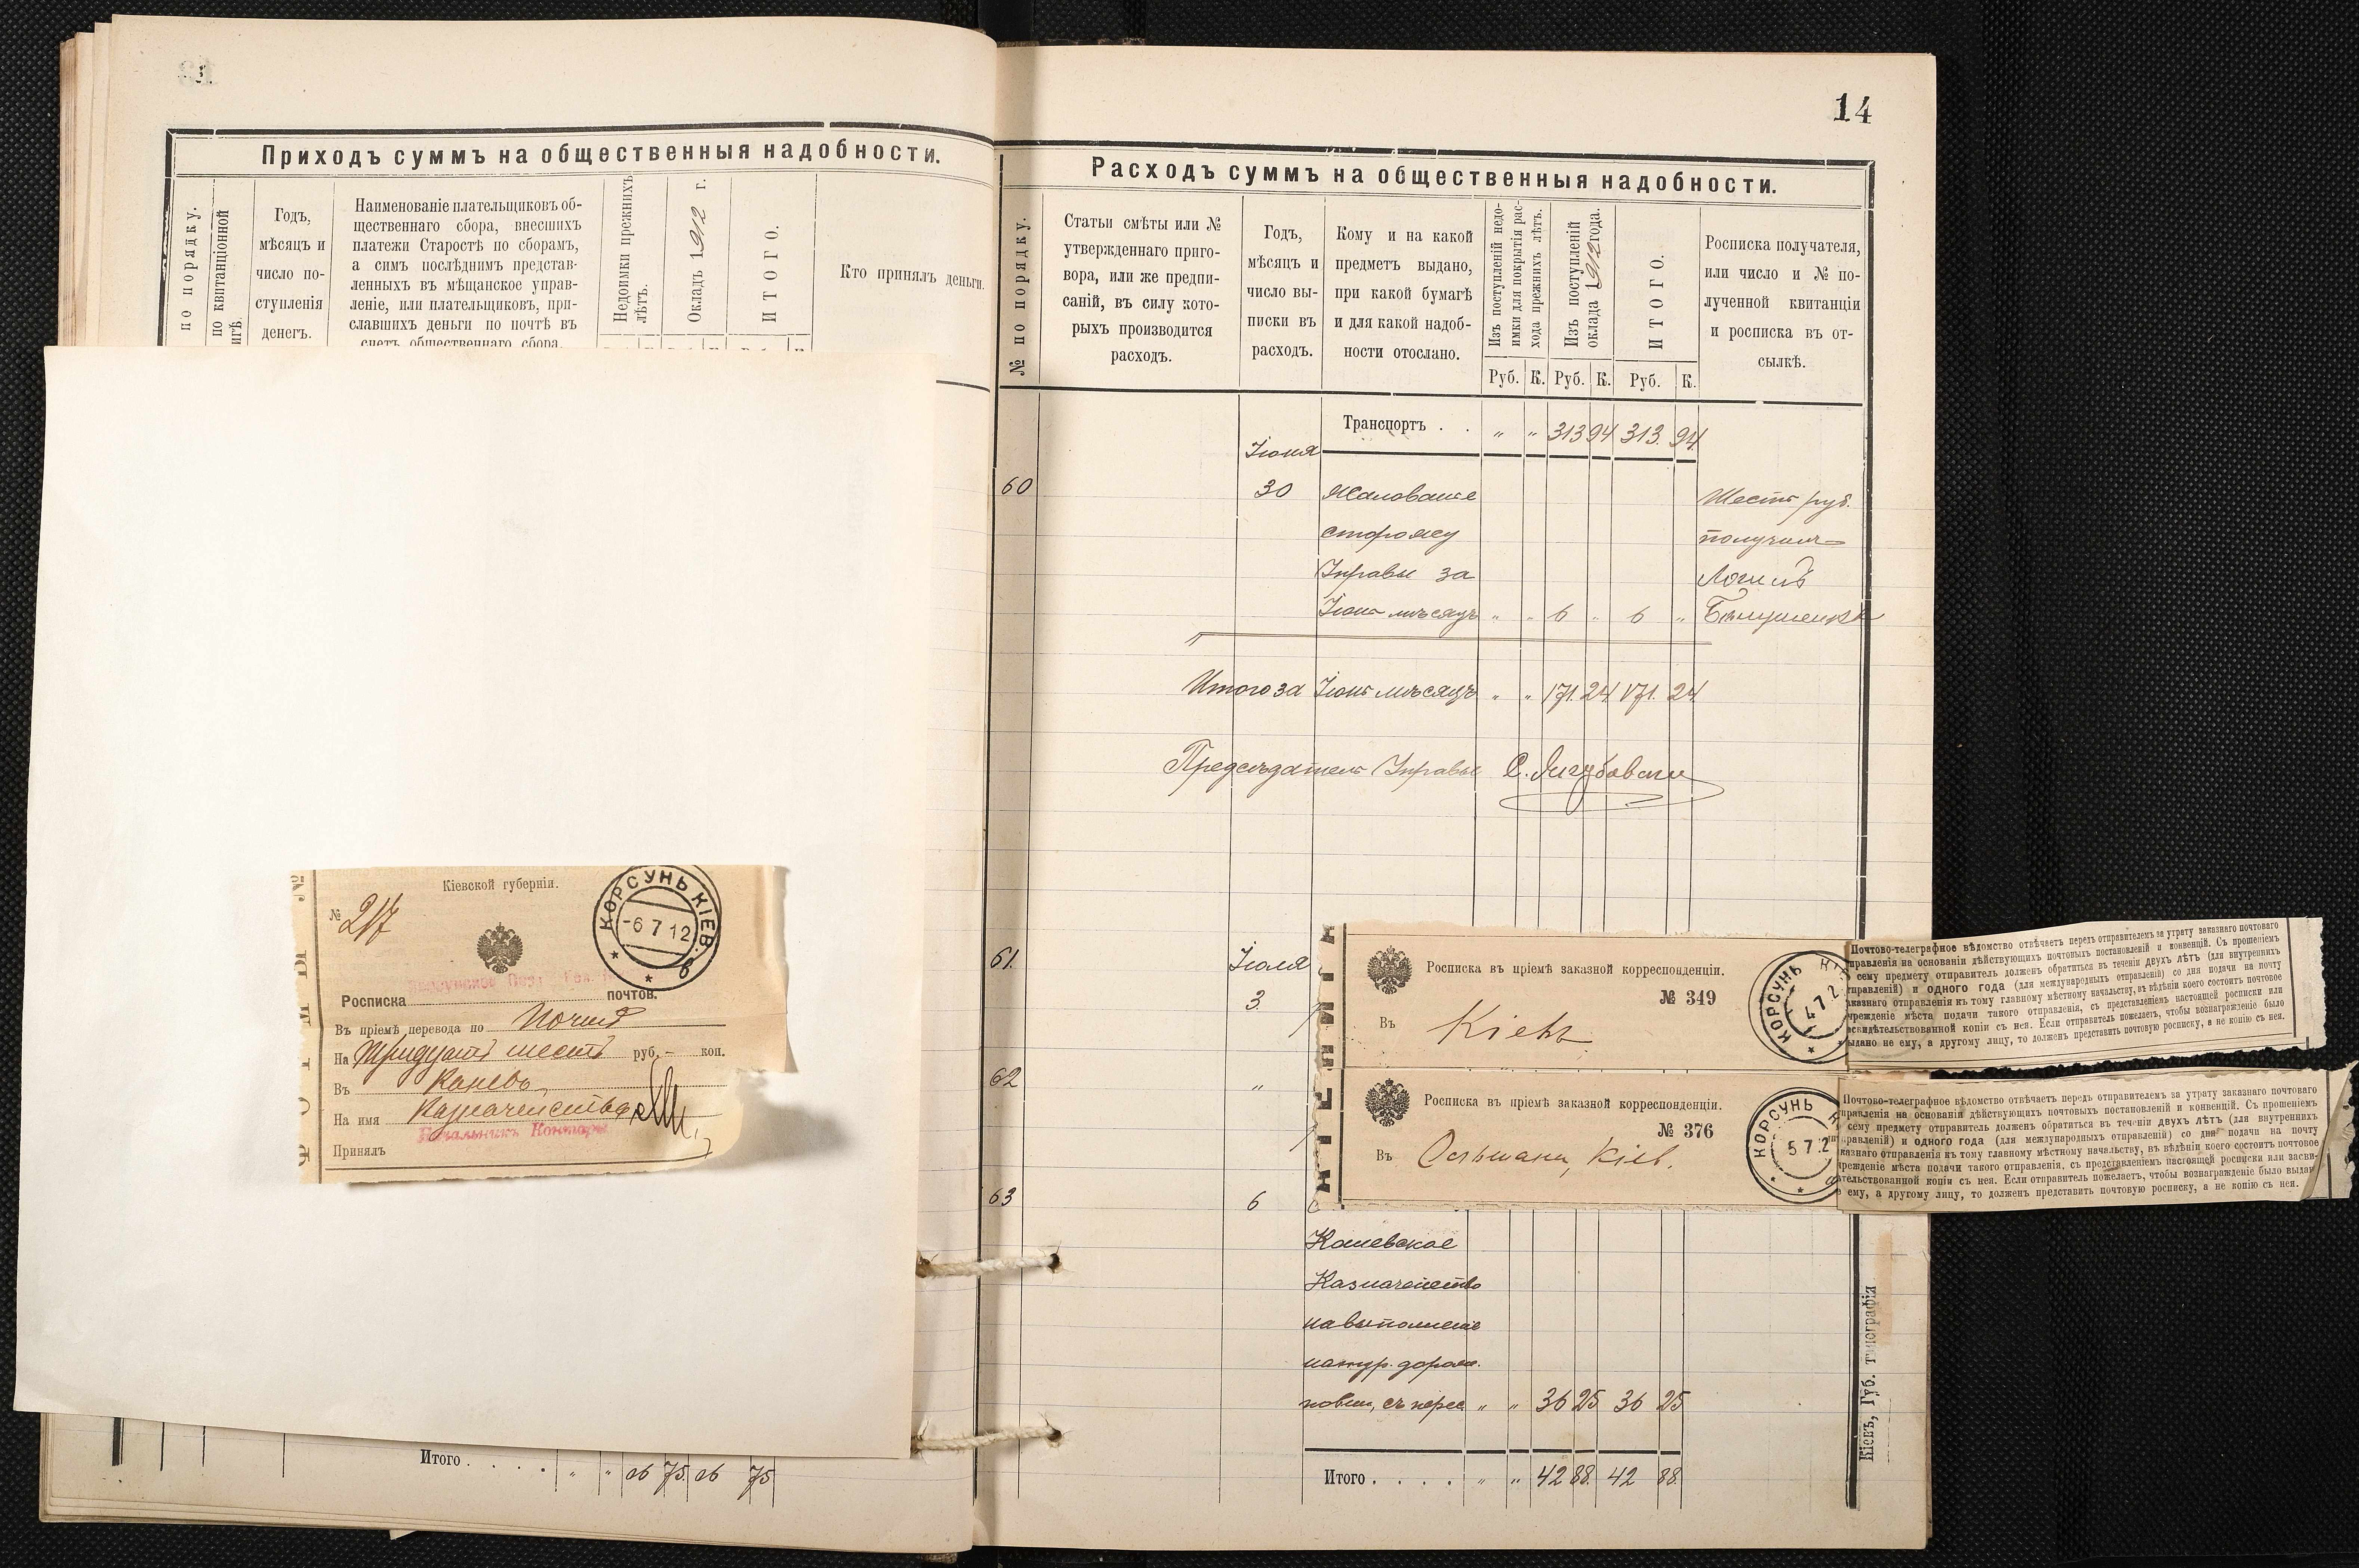 Приходъ суммъ на общественныя надобности.
по порядку.
по квитанціонной
Годъ,
мѣсяцъ и
число по-
ступленія
денегъ.
Наименованіе плательщиковъ об-
щественнаго сбора, внесшихъ
платежи Старостѣ по сборамъ,
а симъ послѣднимъ представ-
ленныхъ въ мѣщанское управ-
леніе, или плательщиковъ, при-
славшихъ деньги по почтѣ въ
счетъ общественнаго сбора.
Недоимки прежнихъ
лѣтъ.
Окладъ 1912 г.
ИТОГО.
Кто принялъ деньги.
Кіевской губерніи.
№ 217
КОРСУНЬ КІЕВ.
-6 7 12
Росписка почтов.
Въ пріемѣ перевода по почтѣ
На Тридцать шесть руб. - коп.
Въ Каневъ
На имя Казначейства
Начальникъ Конторы
Принялъ
Итого . . . . " " 26 75 26 75
14
Расходъ суммъ на общественныя надобности.
№ по порядку.
Статьи смѣты или №
утвержденнаго приго-
вора, или же предпи-
саній, въ силу кото-
рыхъ производится
расходъ.
Годъ,
мѣсяцъ и
число вы-
писки въ
расходъ.
Кому и на какой
предметъ выдано,
при какой бумагѣ
и для какой надоб-
ности отослано.
Изъ поступленій недо-
имки для покрытія рас-
хода прежнихъ лѣтъ.
Изъ поступленій
оклада 1912 года.
ИТОГО.
Руб. К. Руб. К. Руб. К.
Росписка получателя,
или число и № по-
лученной квитанціи
и росписка въ от-
сылкѣ.
Транспортъ . . " " 313 94 313. 94
Іюня
60 30 Жалованье Шесть руб.
сторожу получилъ
Управы за Логинъ
Іюнь мѣсяцъ " " 6 " 6 "
Итого за Іюнь мѣсяцъ " " 171. 24 171. 24
Предсѣдатель Управы
61. Іюля
3.
Росписка въ пріемѣ заказной корреспонденціи.
№ 349
Въ Кіевъ
КОРСУНЬ
4 7 2
Почтово-телеграфное вѣдомство отвѣчаетъ передъ отправителемъ за утрату заказнаго почтоваго
правленія на основаніи дѣйствующихъ почтовыхъ постановленій и конвенцій. Съ прошеніемъ
сему предмету отправитель долженъ обратиться въ теченіи двухъ лѣтъ (для внутреннихъ
правленій) и одного года (для международныхъ отправленій) со дня подачи на почту
аказнаго отправленія къ тому главному мѣстному начальству, въ вѣдѣніи коего состоитъ почтовое
чрежденіе мѣста подачи такого отправленія, съ представленіемъ настоящей росписки или
асвидѣтельствованной копіи съ нея. Если отправитель пожелаетъ, чтобы вознагражденіе было
ыдано не ему, а другому лицу, то долженъ представить почтовую росписку, а не копію съ нея.
62 "
Росписка въ пріемѣ заказной корреспонденціи.
№ 376
Въ Кіев.
КОРСУНЬ
5 7.2
Почтово-телеграфное вѣдомство отвѣчаетъ передъ отправителемъ за утрату заказнаго почтоваго
правленія на основаніи дѣйствующихъ почтовыхъ постановленій и конвенцій. Съ прошеніемъ
сему предмету отправитель долженъ обратиться въ теченіи двухъ лѣтъ (для внутреннихъ
правленій) и одного года (для международныхъ отправленій) со дня подачи на почту
казнаго отправленія къ тому главному мѣстному начальству, въ вѣдѣніи коего состоитъ почтовое
чрежденіе мѣста подачи такого отправленія, съ представленіемъ настоящей росписки или засви-
тельствованной копіи съ нея. Если отправитель пожелаетъ, чтобы вознагражденіе было выдан
е ему, а другому лицу, то долженъ представить почтовую росписку, а не копію съ нея.
63 6
Каневское
Казначейство
на выполненіе
натур. дорож.
повин., съ перес " " 36 25 36 25
Итого . . . . " " 42 88. 42 88.
Кіевъ, Губ. типографія